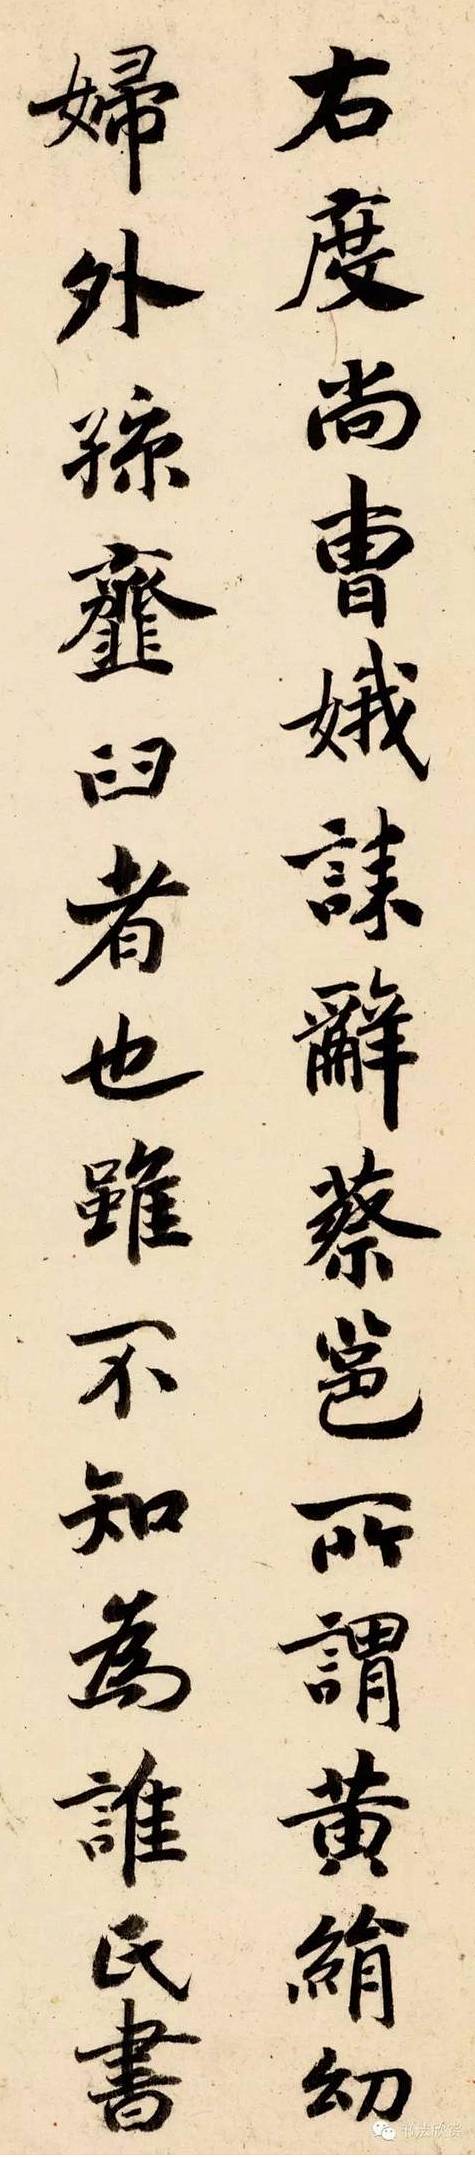 右度尚曹娥誄辭蔡邕所謂黃絹幼
婦外孫虀臼者也雖不知為誰氏書
书法欣赏